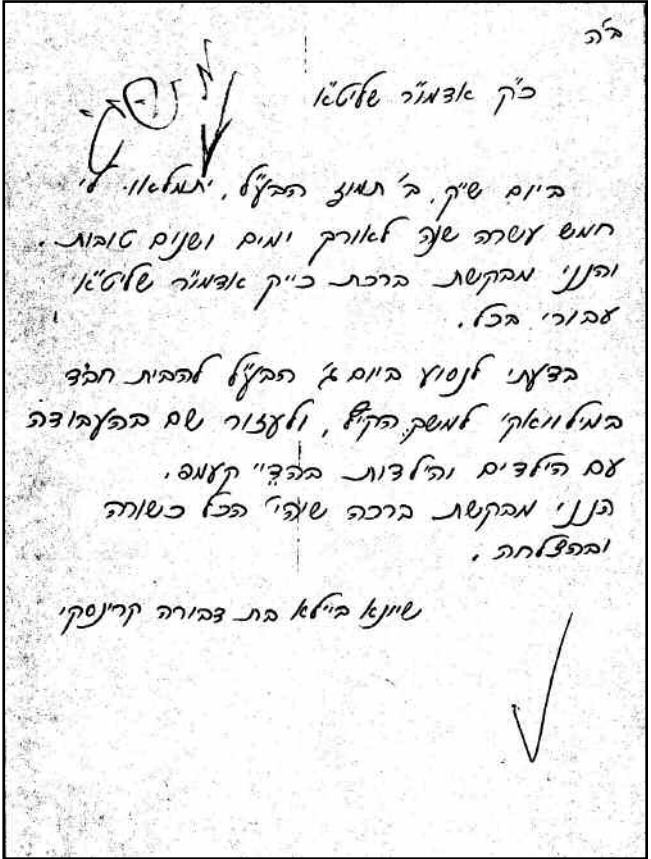 ב"ה
כ"ק אדמו"ר שליט"א
ביום ש"ק, ב' תמוז הבע"ל, יתמלאו לי
חמש עשרה שנה לאורך ימים ושנים טובות.
והנני מבקשת ברכת כ"ק אדמו"ר שליט"א
עבורי בכל.
בדעתי לנסוע ביום ג' הבע"ל להבית חב"ד
במילוואקי למשך הקיץ, ולעזור שם בהעבודה
עם הילדים והילדות בהדיי קעמפ.
הנני מבקשת ברכה שיהי' הכל כשורה
ובהצלחה.
שיינא ביילא בת דבורה קרינסקי